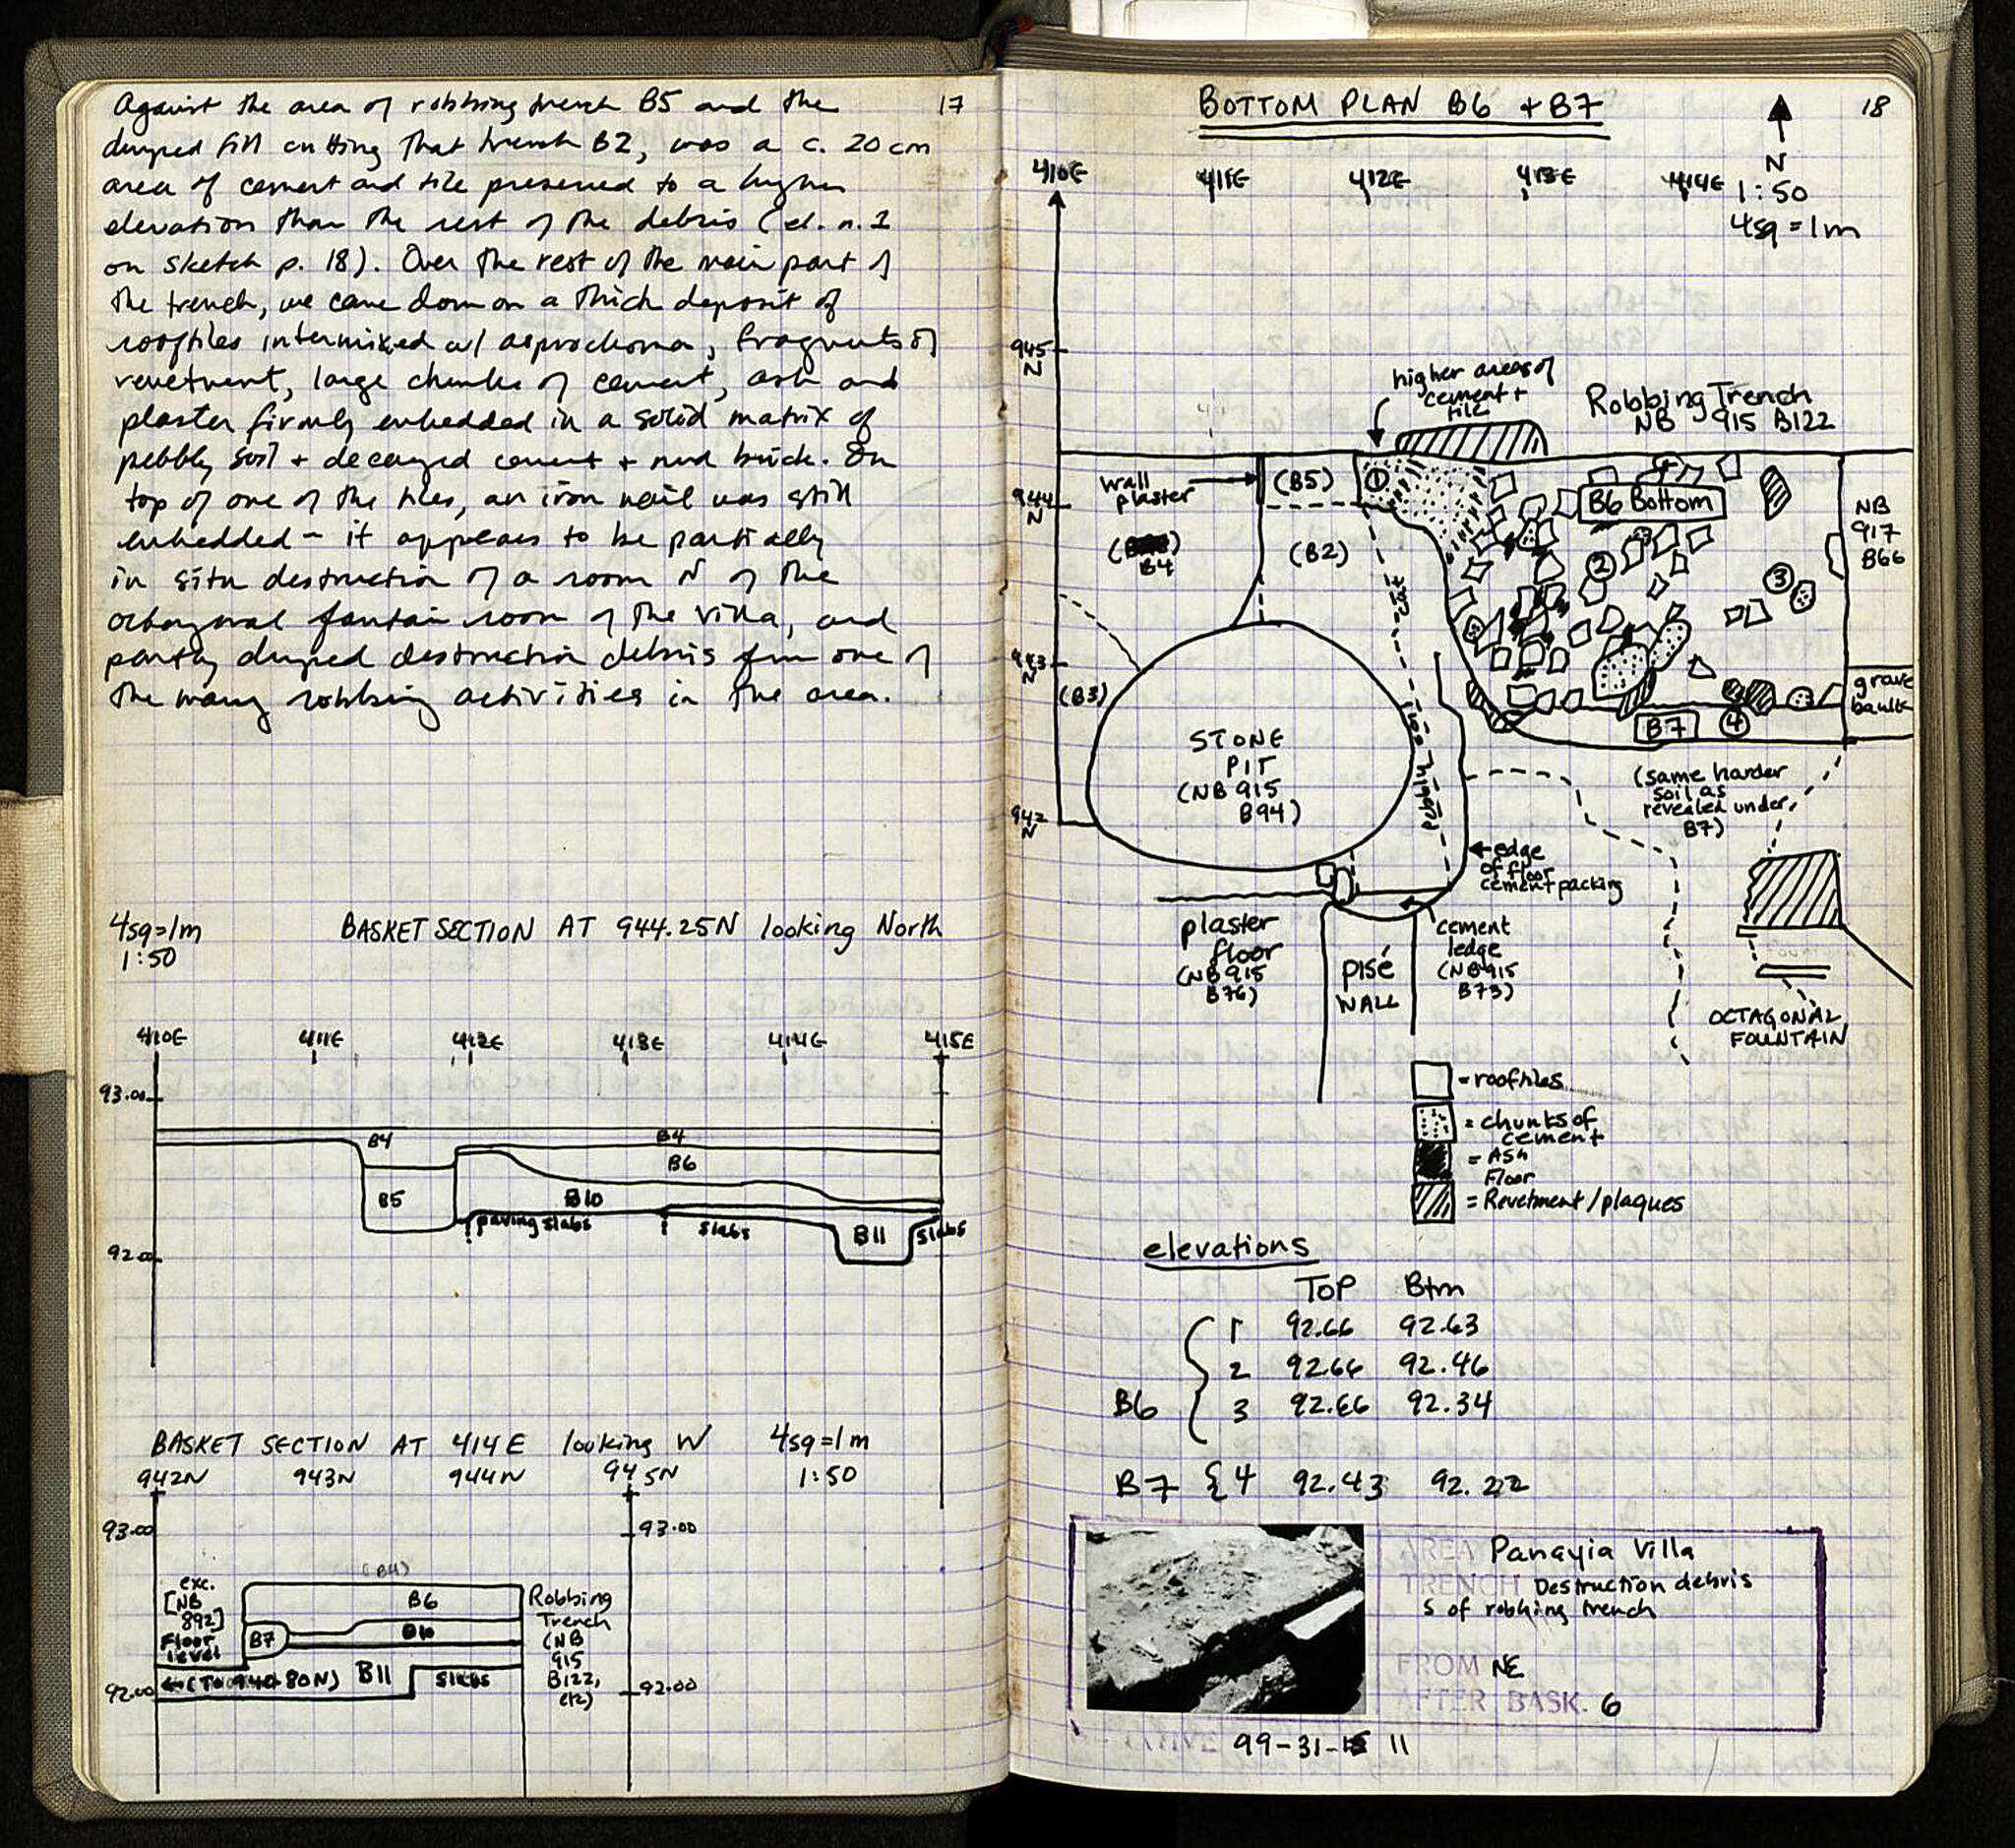 17
Against the area of robbing trench B5 and the
dumped fill cutting that trench B2, was a c. 20 cm
area of cement and tile preserved to a higher
elevation than the rest of the debris (el. n. 1
on sketch p. 18). Over the rest of the main part of
the trench, we came down on a thick deposit of
rooftiles intermixed w/ asprochoma, fragments of
revetment, large chunks of cement, ash and
plaster firmly embedded in a solid matrix of
pebbly soil + decayed cement + mud brick. On
top of one of the tiles, an iron nail was still
embedded - it appears to be partially
in situ destruction of a room N of the
octagonal fountain room of the villa, and
partly dumped destruction debris from one of
the many robbing activities in the area.
4sq=1m
1:50
BASKET SECTION AT 944.25N looking North
410E 411E 412E 413E 414E 415E
93.00
B4 B4
B6
B5 B10
paving slabs slabs B11 slabs
92.00
BASKET SECTION AT 414E looking W 4sq=1m
942N 943N 944N 945N 1:50
93.00 93.00
(B4)
exc.
[NB
892]
Floor
level
B6
B7 B10
B11 slabs
Robbing
Trench
(NB
915
B122,
etc)
92.00 92.00
18
BOTTOM PLAN B6 + B7
N
1:50
4sq=1m
410E 411E 412E 413E 414E
945
N
higher areas of
cement +
tile
Robbing Trench
NB 915 B122
wall
plaster
(B5) 1
B6 Bottom
944
N
NB
917
B66
(B4)
(B2)
2
3
943
N
(B3)
grave
baulk
B7 4
STONE
PIT
(NB 915
B94)
pebbly soil
942
N
(same harder
soil as
revealed under
B7)
edge
of floor
cement packing
plaster
floor
(NB 915
B76)
pisé
WALL
cement
ledge
(NB 915
B73)
OCTAGONAL
FOUNTAIN
= rooftiles
= chunks of
cement
= Ash
Floor
= Revetment/plaques
elevations
TOP Btm
1 92.66 92.63
2 92.66 92.46
B6 3 92.66 92.34
B7 { 4 92.43 92.22
AREA Panayia Villa
TRENCH Destruction debris
S of robbing trench
FROM NE
AFTER BASK. 6
99-31-11